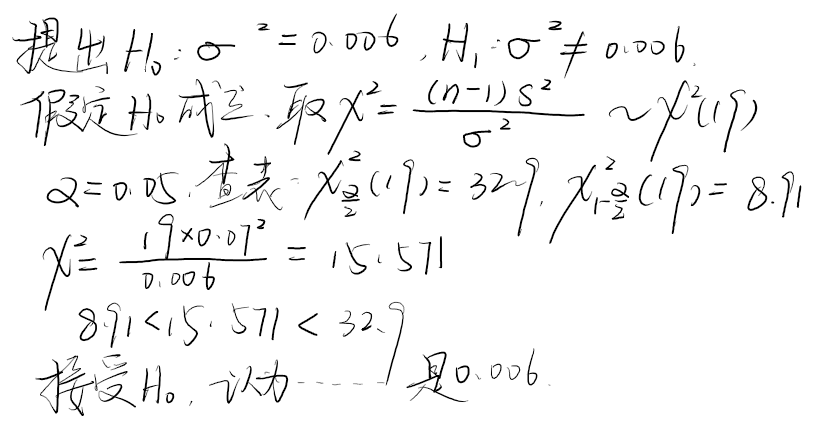 提出 H₀: σ² = 0.006, H₁: σ² ≠ 0.006.
假定 H₀ 成立. 取 χ² = (n-1)S² / σ² ~ χ²(19)
α = 0.05. 查表 χ²_{α/2}(19) = 32.9, χ²_{1-α/2}(19) = 8.91
χ² = 19×0.07² / 0.006 = 15.571
8.91 < 15.571 < 32.9
接受 H₀, 认为 ------ 是 0.006.